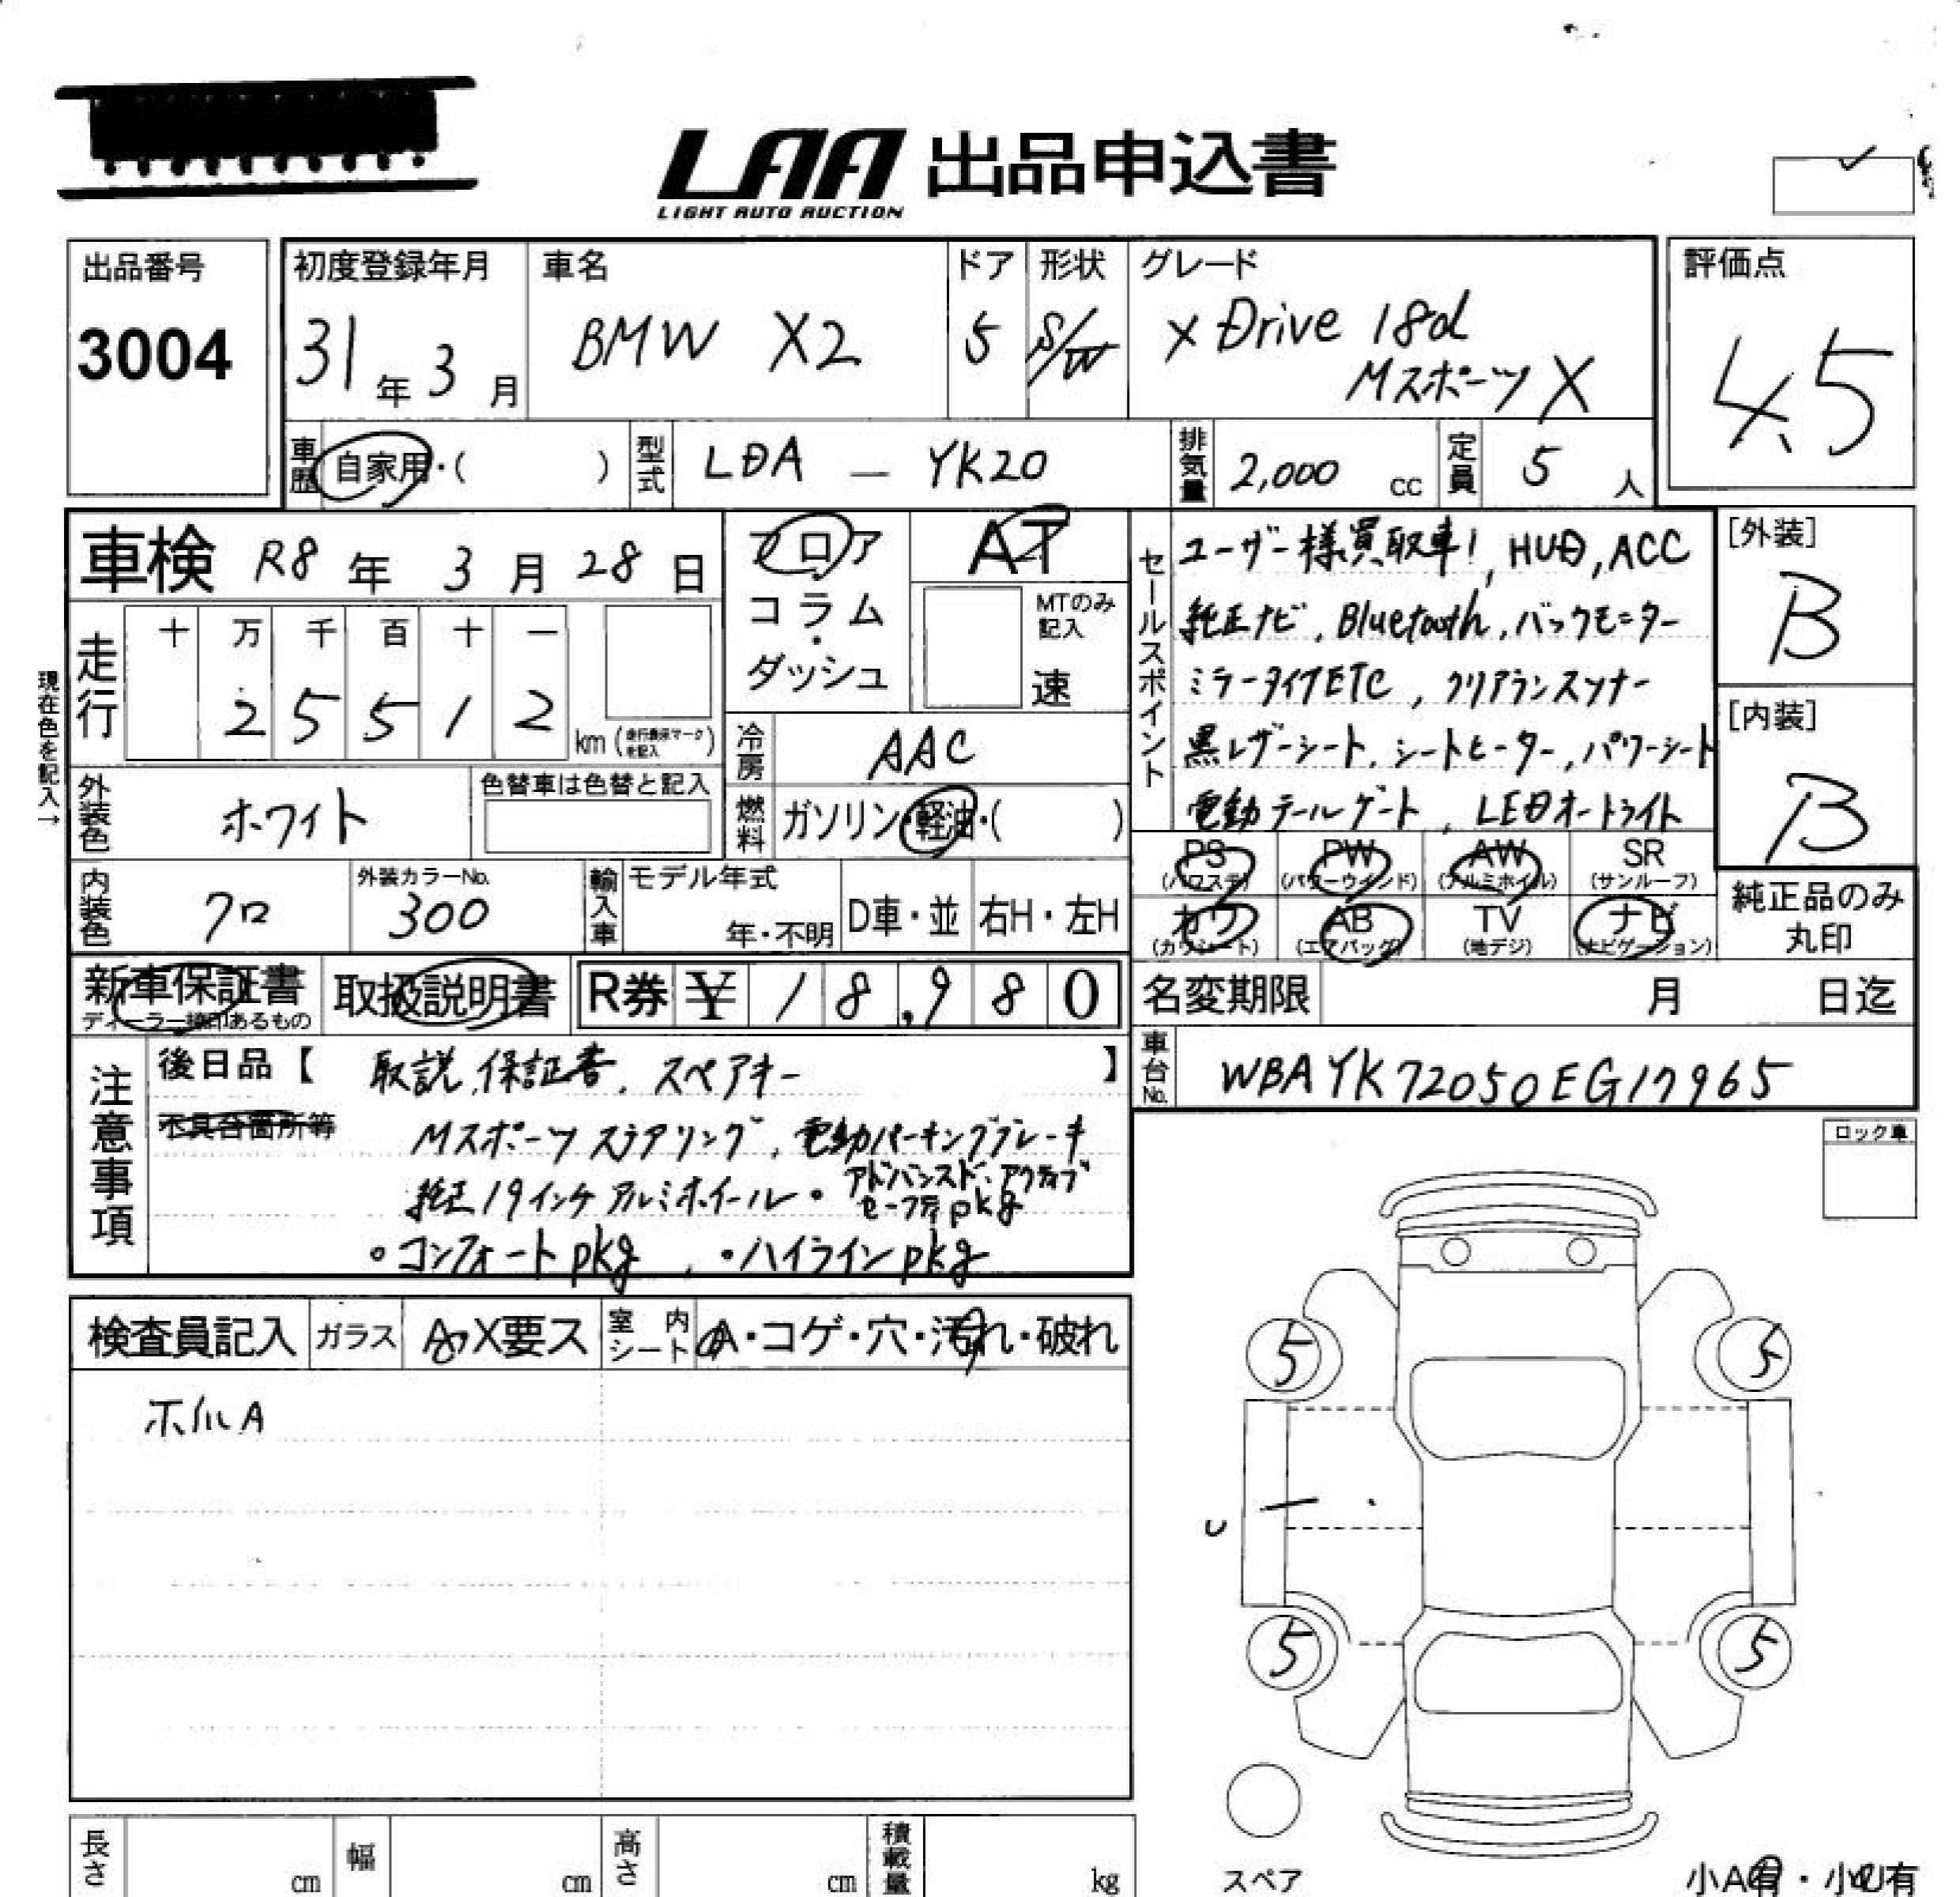 LAA 出品申込書
LIGHT AUTO AUCTION
出品番号
3004
初度登録年月
31年3月
車名
BMW X2
ドア
5
形状
S/W
グレード
X Drive 18d
Mスポーツ X
評価点
4.5
車歴
自家用・( )
型式
LDA — YK20
排気量
2,000 cc
定員
5 人
車検 R8年 3月 28日
フロア
・
コラム
・
ダッシュ
AT
MTのみ
記入
速
セールスポイント
ユーザー様買取車!, HUD, ACC
純正ナビ, Bluetooth, バックモニター
ミラータイプETC, クリアランスソナー
黒レザーシート, シートヒーター, パワーシート
電動テールゲート, LEDオートライト
[外装]
B
[内装]
B
現在色を記入→
走行
十 万 千 百 十 一
2 5 5 1 2
km (走行表示マークを記入)
冷房
AAC
外装色
ホワイト
色替車は色替と記入
燃料
ガソリン・軽油・( )
内装色
クロ
外装カラーNo.
300
輸入車
モデル年式
年・不明
D車・並
右H・左H
PS
(パワステ)
PW
(パワーウインド)
AW
(アルミホイル)
SR
(サンルーフ)
カワ
(カワシート)
AB
(エアバッグ)
TV
(地デジ)
ナビ
(ナビゲーション)
純正品のみ
丸印
新車保証書
ディーラー捺印あるもの
取扱説明書
R券 ¥ 18,980
名変期限 月 日迄
車台No.
WBAYK72050EG17965
注意事項
後日品【 取説, 保証書, スペアキー 】
不具合箇所等
Mスポーツステアリング, 電動パーキングブレーキ
純正19インチアルミホイール・アドバンスド・アクティブ
セーフティpkg
・コンフォートpkg, ・ハイラインpkg
ロック車
検査員記入
ガラス
A・X要ス
室内
シート
A・コゲ・穴・汚れ・破れ
ホイルA
5
5
5
5
スペア
長さ cm
幅 cm
高さ cm
積載量 kg
小A有・小U有